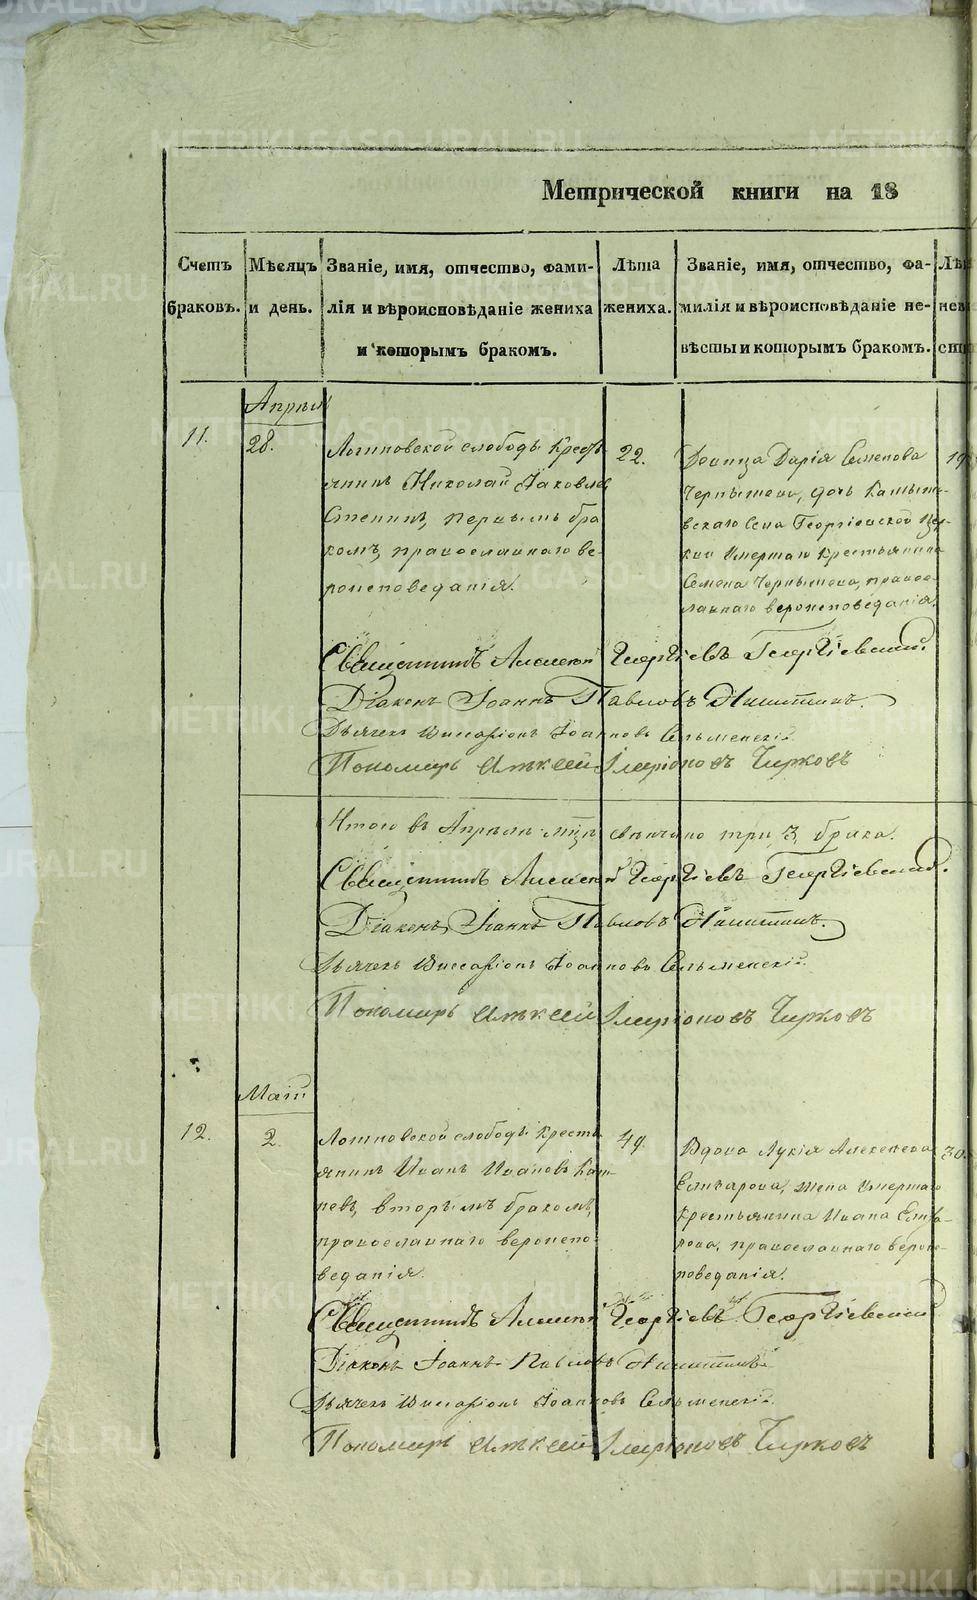 Метрической книги на 18
Счетъ браковъ.
Мѣсяцъ и день.
Званіе, имя, отчество, фами-
лія и вѣроисповѣданіе жениха
и которымъ бракомъ.
Лѣта жениха.
Званіе, имя, отчество, фа-
милія и вѣроисповѣданіе не-
вѣсты и которымъ бракомъ.
Апрѣля
11.
28.
слободы крестъ-
янинъ Николай Яковлевъ
первымъ бра-
комъ, православнаго ве-
роисповеданія.
22.
Дѣвица Дарія Семенова
дочь
села Георгіевской Цер-
кви умершаго крестьянина
Семена правос-
лавнаго вероисповеданія.
19
Священникъ Алексей Георгіевъ Георгіевский.
Діаконъ Іоаннъ Павловъ Никитинъ.
Дьячекъ Виссаріонъ Іоанновъ Сельменскій.
Пономарь Алѣксей Иларіоновъ Чирковъ
Итого въ Апрѣлѣ мцѣ венчано три 3, брака.
Священникъ Алексей Георгіевъ Георгіевский.
Діаконъ Іоаннъ Павловъ Никитинъ.
Дьячекъ Виссаріонъ Іоанновъ Сельменскій.
Пономарь Алѣксей Иларіоновъ Чирковъ
Маій
12.
2.
слободы кресть-
янинъ Иванъ Ивановъ
вторымъ бракомъ,
православнаго вероиспо-
веданія.
Вдова Лукія Алексеева
жена умершаго
крестьянина Ивана
православнаго верои-
поведанія.
30.
Священникъ Алексей Георгіевъ Георгіевский
Діаконъ Іоаннъ Павловъ Никитинъ
Дьячекъ Виссаріонъ Іоанновъ Сельменскій.
Пономарь Алѣксей Иларіоновъ Чирковъ
METRIKI.GASO-URAL.RU